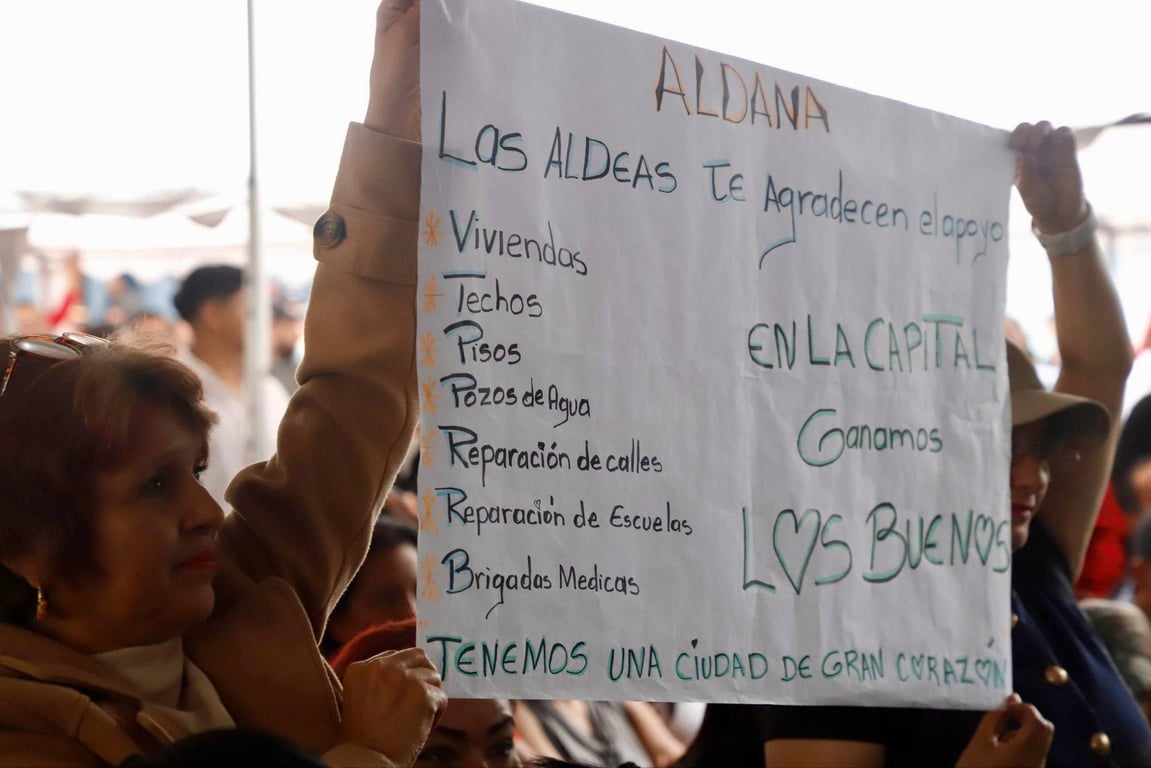 ALDANA
Las ALDEAS TE Agradecen el apoyo
* Viviendas
* Techos
* Pisos
* Pozos de Agua
* Reparación de calles
* Reparación de Escuelas
* Brigadas Medicas
EN LA CAPITAL
Ganamos
LOS BUENOS
TENEMOS UNA CIUDAD DE GRAN CORAZÓN